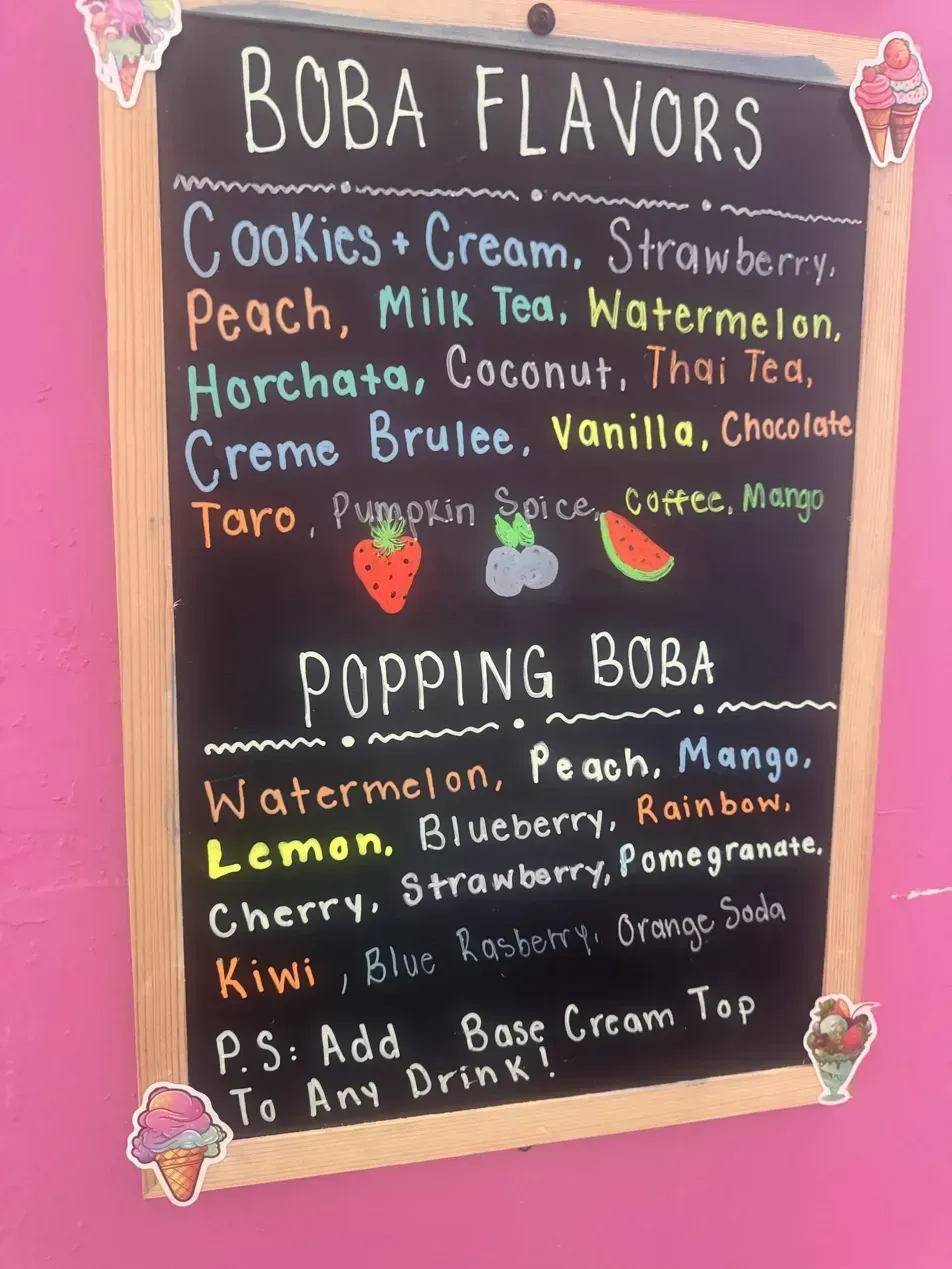 BOBA FLAVORS
Cookies + Cream, Strawberry,
Peach, Milk Tea, Watermelon,
Horchata, Coconut, Thai Tea,
Creme Brulee, Vanilla, Chocolate
Taro, Pumpkin Spice, Coffee, Mango
POPPING BOBA
Watermelon, Peach, Mango,
Lemon, Blueberry, Rainbow,
Cherry, Strawberry, Pomegranate,
Kiwi, Blue Rasberry, Orange Soda
P.S: Add Base Cream Top
To Any Drink!